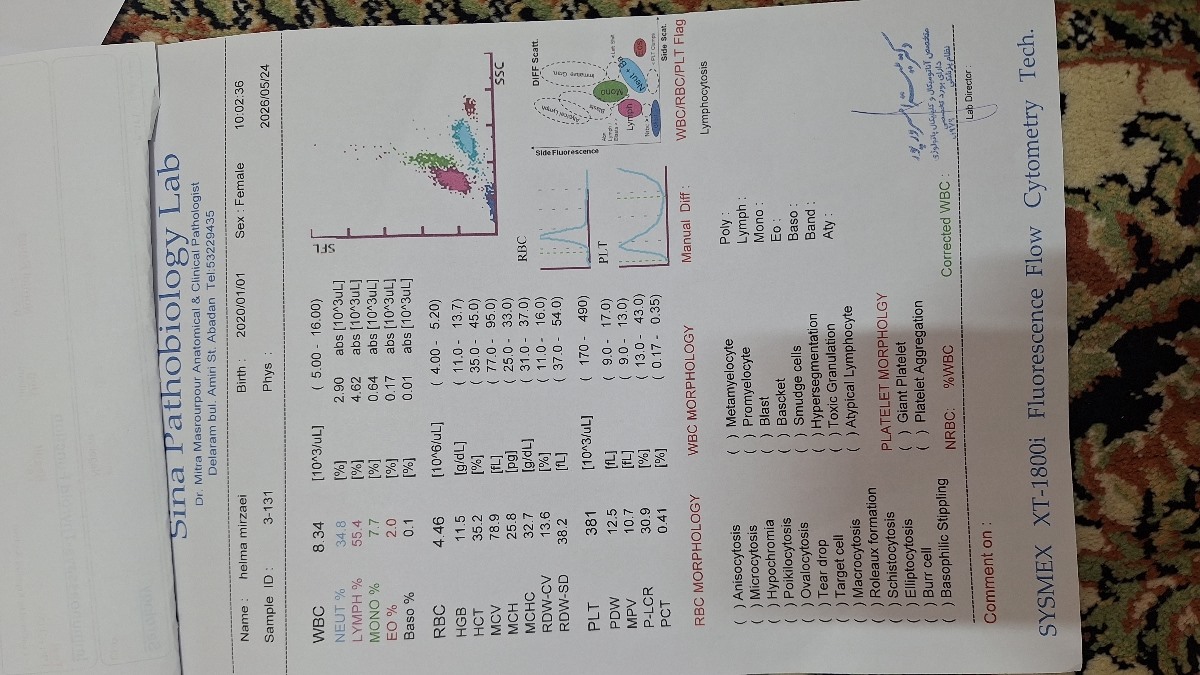 Sina Pathobiology Lab
Dr. Mitra Masrourpour Anatomical & Clinical Pathologist
Delaram bul. Amiri St. Abadan Tel:53229435
Name : helma mirzaei Birth : 2020/01/01 Sex : Female 10:02:36
Sample ID : 3-131 Phys : 2026/05/24
WBC 8.34 [10^3/uL] ( 5.00 - 16.00)
NEUT % 34.8 [%] 2.90 abs [10^3uL]
LYMPH % 55.4 [%] 4.62 abs [10^3uL]
MONO % 7.7 [%] 0.64 abs [10^3uL]
EO % 2.0 [%] 0.17 abs [10^3uL]
Baso % 0.1 [%] 0.01 abs [10^3uL]
RBC 4.46 [10^6/uL] ( 4.00 - 5.20)
HGB 11.5 [g/dL] ( 11.0 - 13.7)
HCT 35.2 [%] ( 35.0 - 45.0)
MCV 78.9 [fL] ( 77.0 - 95.0)
MCH 25.8 [pg] ( 25.0 - 33.0)
MCHC 32.7 [g/dL] ( 31.0 - 37.0)
RDW-CV 13.6 [%] ( 11.0 - 16.0)
RDW-SD 38.2 [fL] ( 37.0 - 54.0)
PLT 381 [10^3/uL] ( 170 - 490)
PDW 12.5 [fL] ( 9.0 - 17.0)
MPV 10.7 [fL] ( 9.0 - 13.0)
P-LCR 30.9 [%] ( 13.0 - 43.0)
PCT 0.41 [%] ( 0.17 - 0.35)
SFL
SSC
RBC
PLT
DIFF Scatt.
Side Fluorescence
Side Scat.
Immature Gran.
Mono
Lymph
Neut + Ba
EOS
RBC MORPHOLOGY
( ) Anisocytosis
( ) Microcytosis
( ) Hypochromia
( ) Poikilocytosis
( ) Ovalocytosis
( ) Tear drop
( ) Target cell
( ) Macrocytosis
( ) Roleaux formation
( ) Schistocytosis
( ) Elliptocytosis
( ) Burr cell
( ) Basophilic Stippling
WBC MORPHOLOGY
( ) Metamyelocyte
( ) Promyelocyte
( ) Blast
( ) Bascket
( ) Smudge cells
( ) Hypersegmentation
( ) Toxic Granulation
( ) Atypical Lymphocyte
PLATELET MORPHOLGY
( ) Giant Platelet
( ) Platelet Aggregation
NRBC: %WBC Corrected WBC :
Manual Diff :
Poly :
Lymph :
Mono :
Eo :
Baso :
Band :
Aty :
WBC/RBC/PLT Flag
Lymphocytosis
Lab Director :
Comment on :
SYSMEX XT-1800i Fluorescence Flow Cytometry Tech.